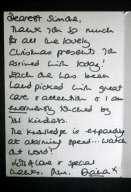 Dearest Simone,
Thank you so much
for all the lovely
Christmas presents you
arrived with today!
Each one has been
hand picked with great
care & attention & I am
enormously touched by
your kindness.
The knowledge is expanding
at alarming speed... watch
out world!
With love & special
thanks from,